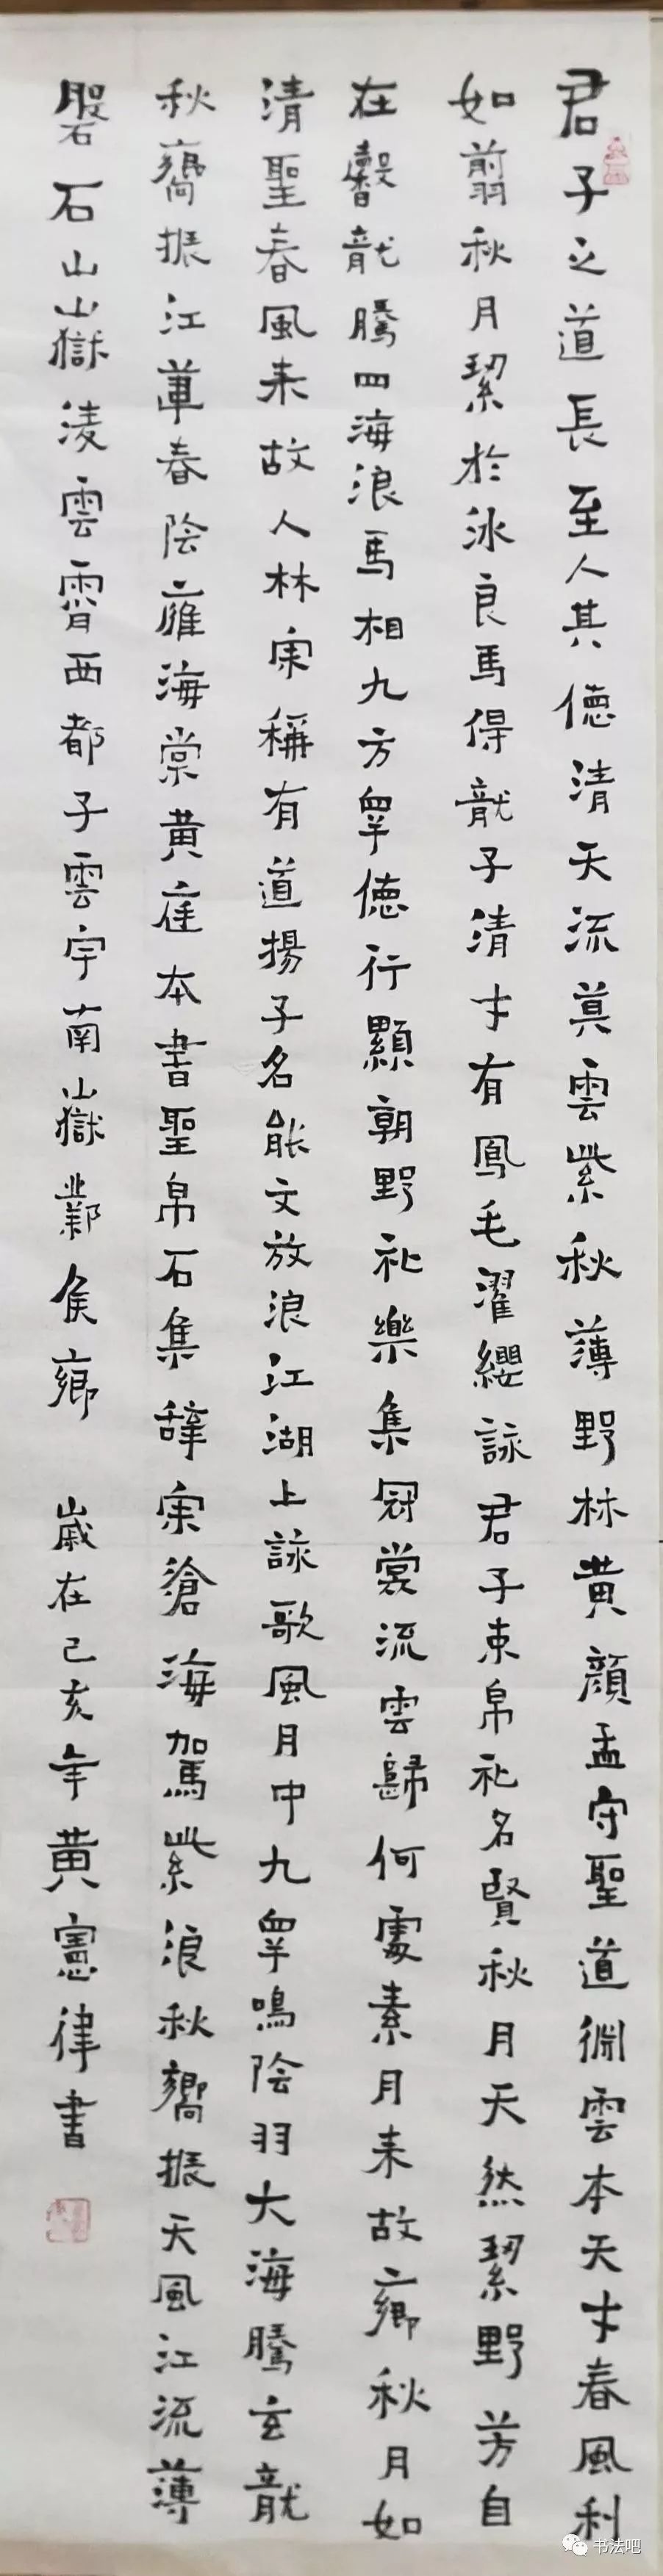 君子之道長至人其德清天流莫雲紫秋薄野林黄顔孟守聖道淵雲本天才春風利
如翦秋月絜於冰良馬得龍子清才有鳳毛濯纓詠君子束帛礼名賢秋月天然絜野芳自
在馨龍騰四海浪馬相九方皋德行顯朝野礼樂集冠裳流雲歸何處素月来故鄉秋月如
清聖春風来故人林宗稱有道揚子名能文放浪江湖上詠歌風月中九皋鳴陰羽大海騰玄龍
秋嚮振江蕐春陰雍海棠黄庭本書聖帛石集辞宗滄海駕紫浪秋嚮振天風江流薄
磐石山山嶽淩雲霄西都子雲宇南嶽鄴侯鄉 歲在己亥年黄憲律書
书法吧